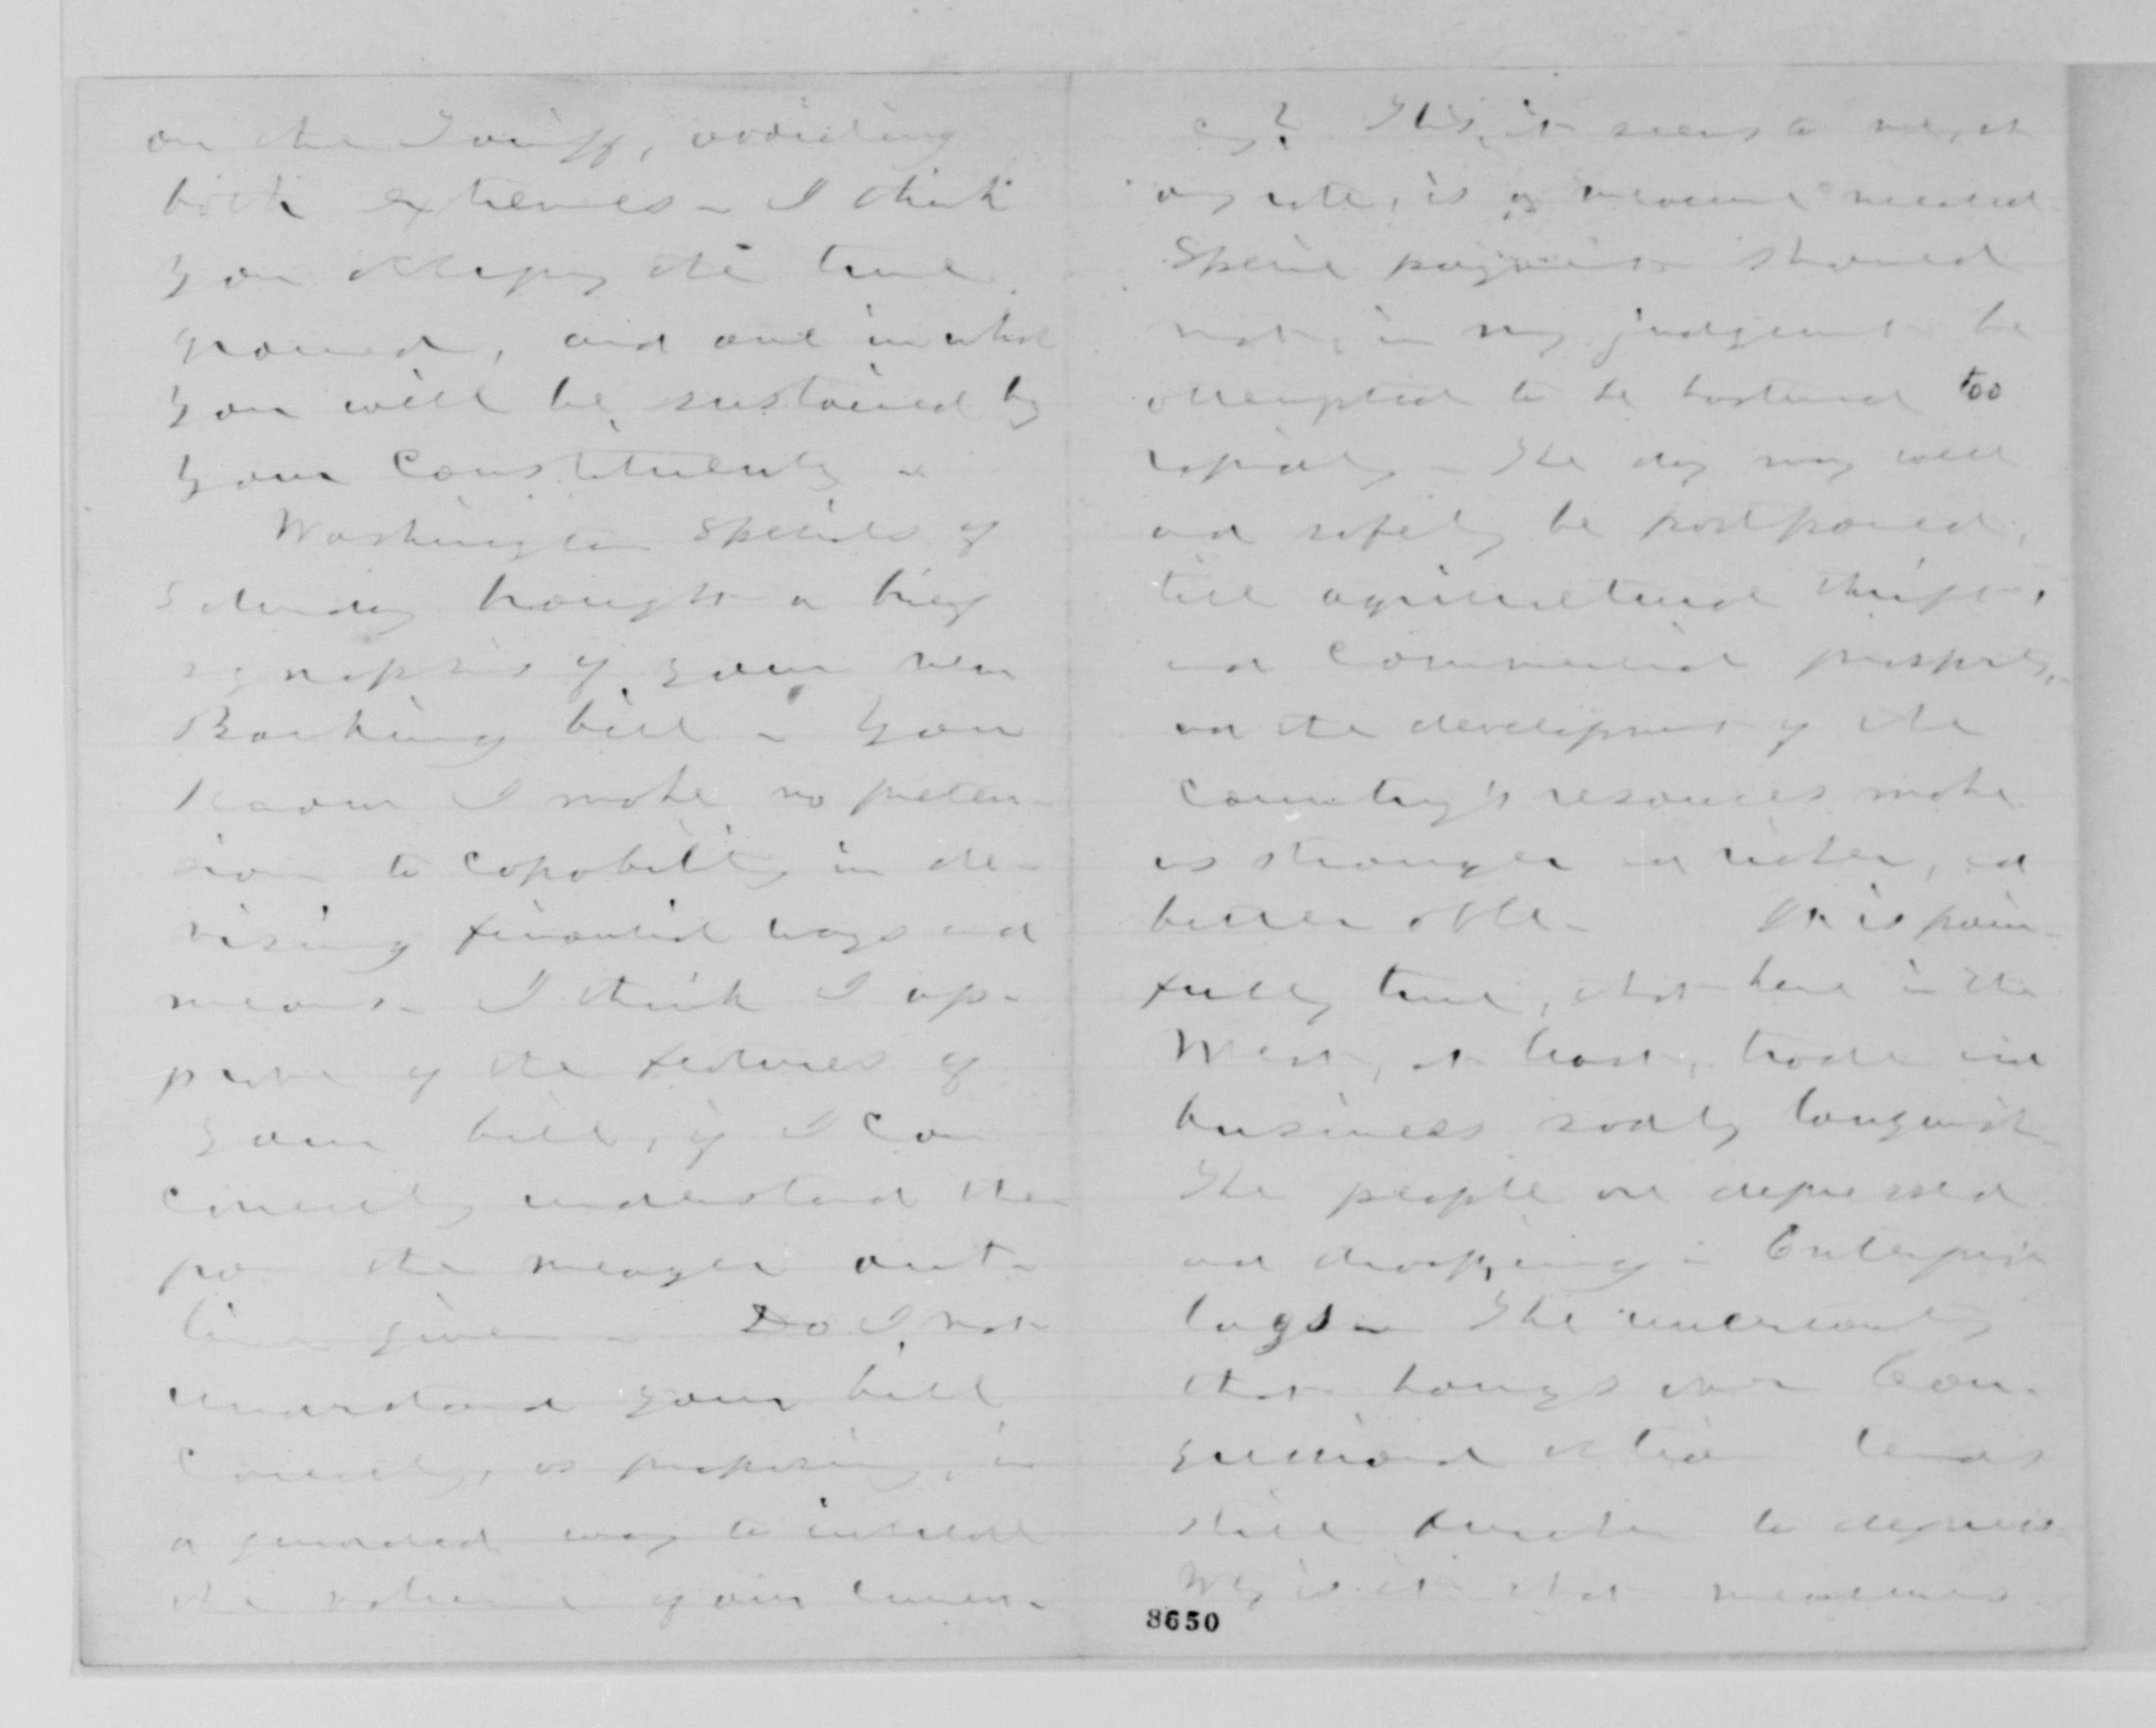 on the Tariff, avoiding
both extremes - I think
you occupy the true
ground, and one in which
you will be sustained by
your Constituents -
Washington specials of
Saturday brought a brief
synopsis of your new
Banking bill - You
know I make no preten-
sion to capability in de-
vising financial ways and
means - I think I ap-
prove of the features of
your bill, if I can
correctly understand them
from the meager out-
line given - Do I not
understand your bill
correctly, as proposing, in
a guarded way to increase
the volume of our curren-
cy? This, it seems to me, at
any rate, is a measure needed
Specie payments should
not, in my judgment be
attempted to be hastened too
rapidly - The day may well
and safely be postponed,
till agricultural thrift,
and commercial prosperity,
and the development of the
country's resources make
us stronger and richer, and
better able - It is pain-
fully true, that here in the
West, at least, trade and
business sadly languish
The people are depressed
and drooping - Enterprise
lags - The uncertainty
that hangs over Con-
gressional action tends
still further to depress
Why is it that measures
8650